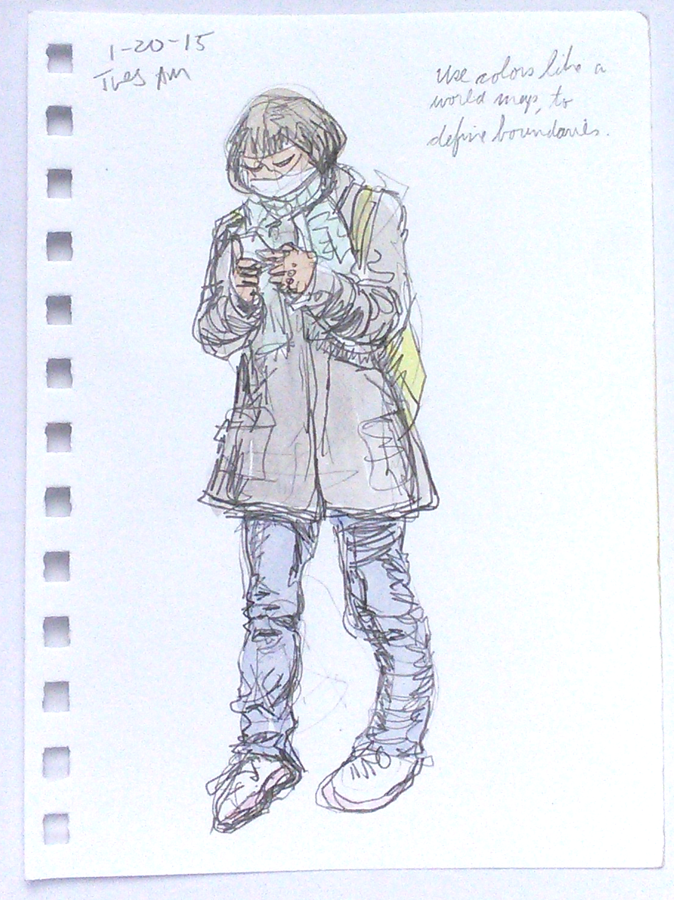 1-20-15
Tues AM
Use colors like a
world map, to
define boundaries.